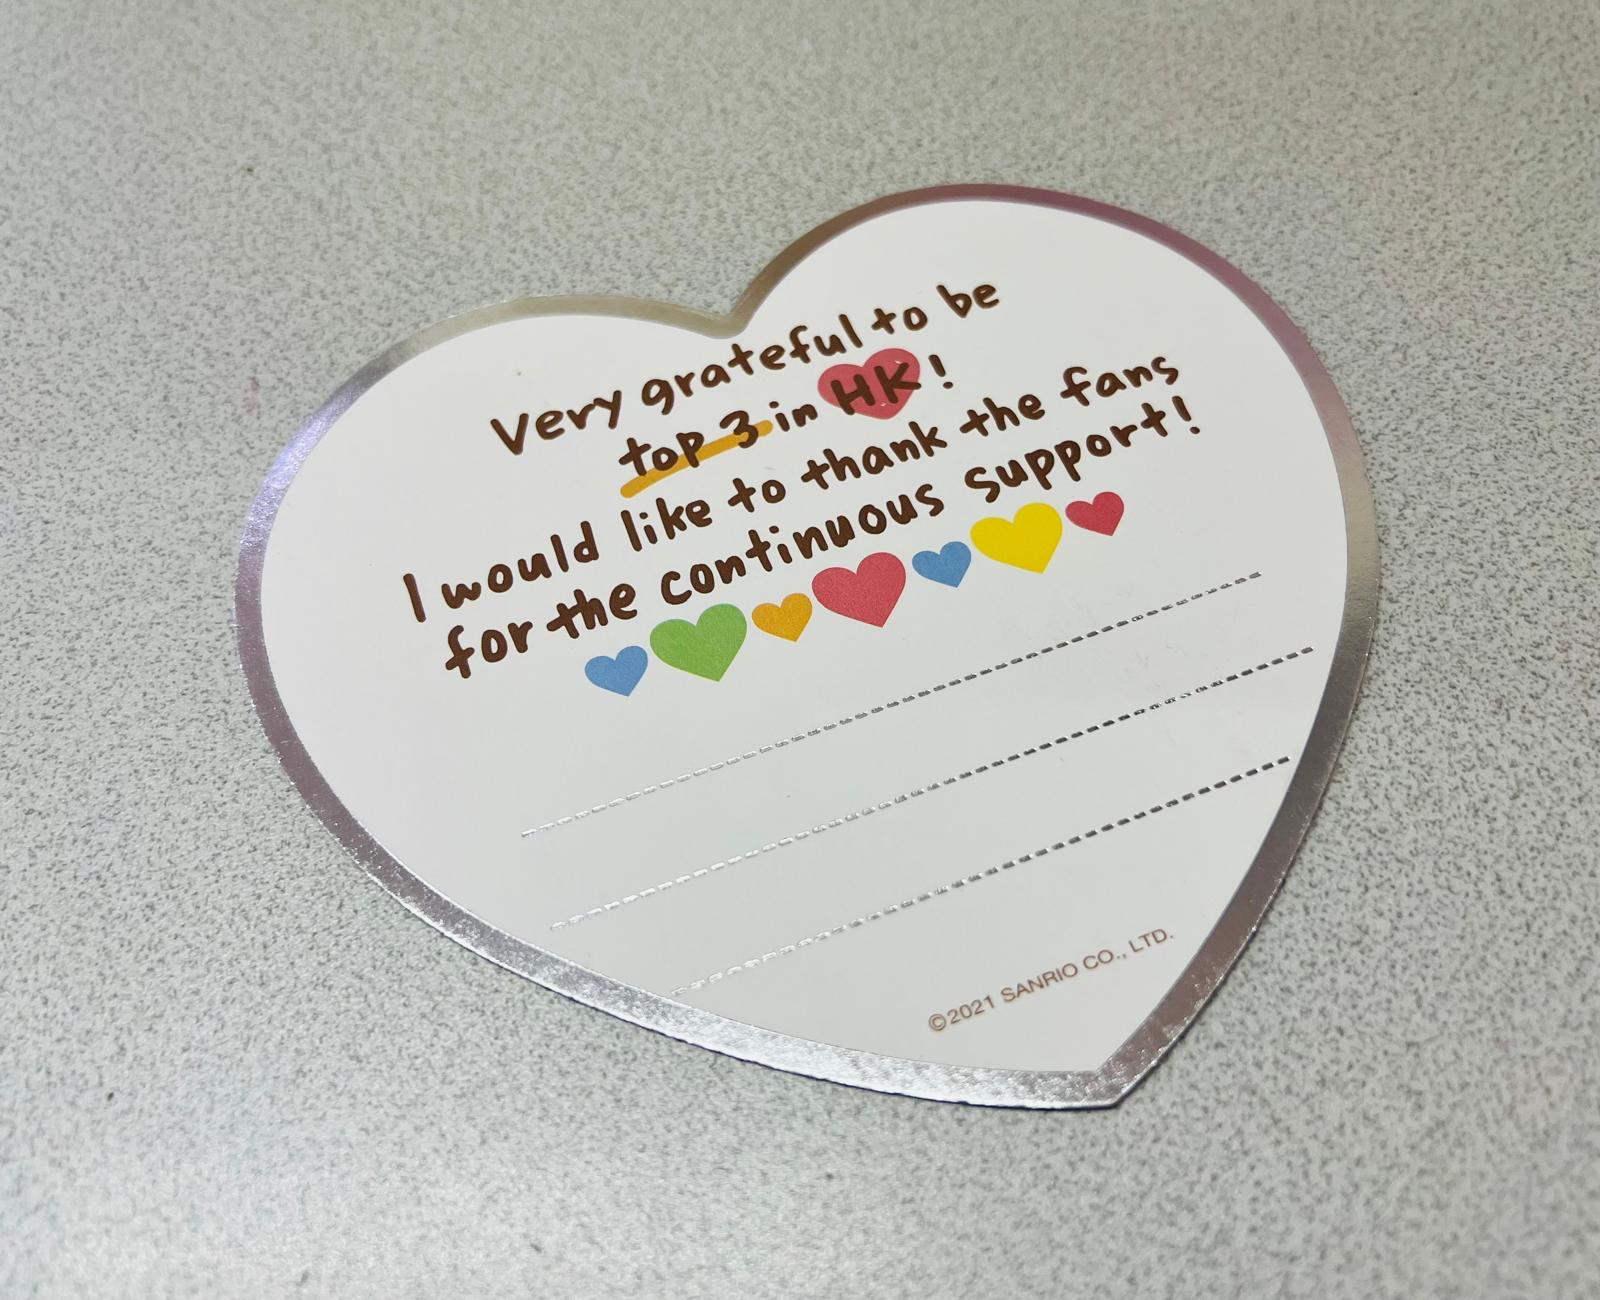 Very grateful to be
top 3 in HK!
I would like to thank the fans
for the continuous support!
©2021 SANRIO CO., LTD.